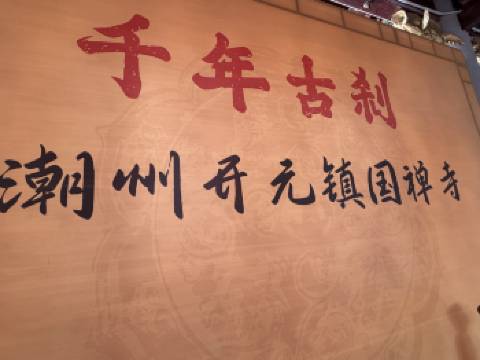 千年古刹
潮州开元镇国禅寺